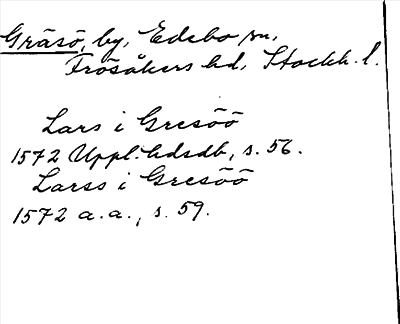 Gräsö, by, Edebo sn,
Frösåkers hd, Stockh. l.
Lars i Gresöö
1572 Uppl. hdsdb, s. 56.
Larss i Gresöö
1572 a.a., s. 59.